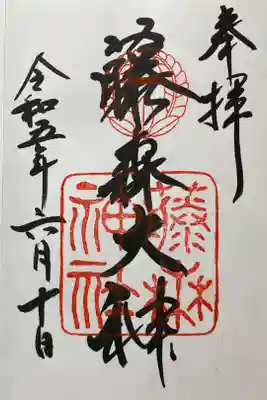 奉拝
藤森大神
藤森
神社
令和五年六月十日